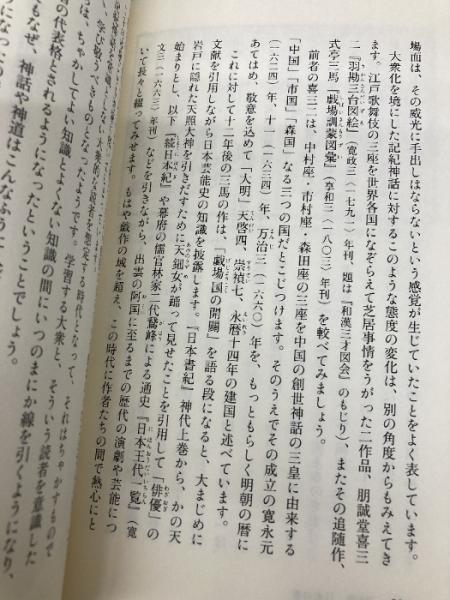 場面は、その威光に手出しはならないという感覚が生じていたことをよく表しています。
大衆化を境にした記紀神話に対するこのような態度の変化は、別の角度からもみえてき
ます。江戸歌舞伎の三座を世界各国になぞらえて芝居事情をうがった二作品、朋誠堂喜三
二『羽勘三台図絵』(寛政三(一七九一)年刊、題は『和漢三才図会』のもじり)、またその追随作、
式亭三馬『戯場訓蒙図彙』(享和三(一八〇三)年刊)を較べてみましょう。
前者の喜三二は、中村座・市村座・森田座の三座を中国の創世神話の三皇に由来する
「中国」「市国」「森国」なる三つの国だとこじつけます。そのうえでその成立の寛永元
(一六二四)年、十一(一六三四)年、万治三(一六六〇)年を、もっともらしく明朝の暦に
あてはめ、敬意を込めて「大明」天啓四、崇禎七、永暦十四年の建国と述べています。
これに対して十二年後の三馬の作は、「戯場国の開闢」を語る段になると、大まじめに
文献を引用しながら日本芸能史の知識を披露します。『日本書紀』神代上巻から、かの天
岩戸に隠れた天照大神を引きだすために天鈿女が踊って見せたことを引用して「俳優」の
始まりとし、以下『続日本紀』や幕府の儒官林家二代鵞峰による通史『日本王代一覧』(寛
文三(一六六三)年刊)などを引きながら、出雲の阿国に至るまでの歴代の演劇や芸能につ
いて長々と綴ってみせます。もはや戯作の域を超え、この時代に作者たちの間で熱心にと
な読者を想定する時代となって、それはちゃかすもので
、学び敬うべきものへなったようです。学習する大衆と、そういう読者を意識した
は、ちゃかしてよい知識と
い知識の間にいつのまにか線を引くようになり、
の代表格とされるようになったということでしょう。
もなぜ、神話や神道はこんなふうに